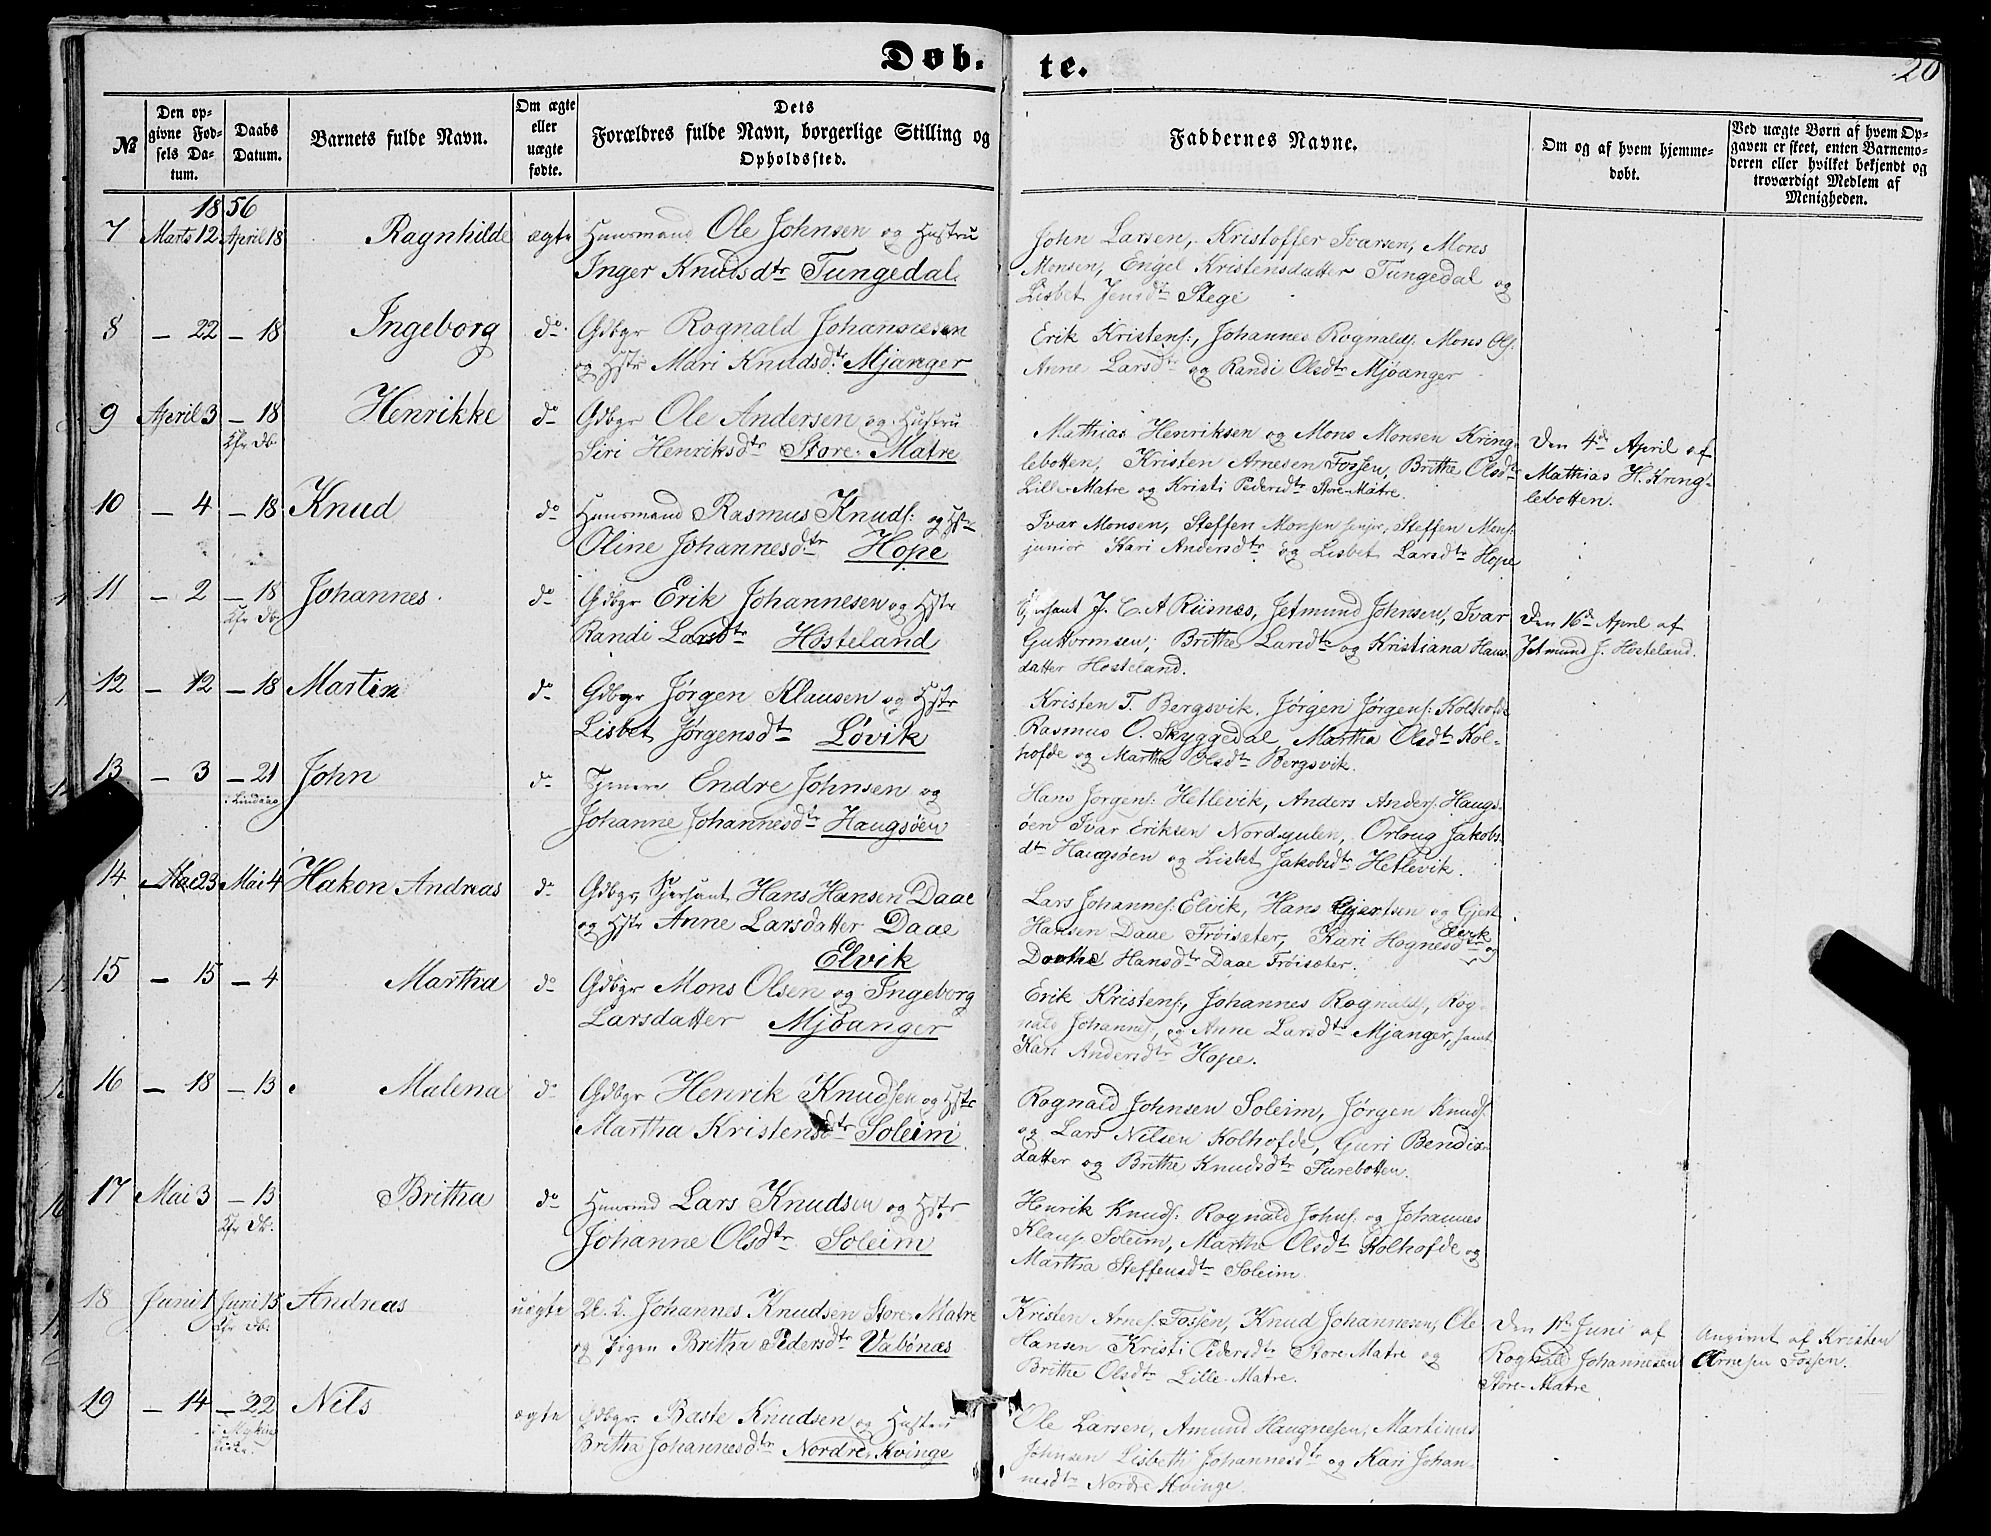 Døb. te.
20
№
Den op-
givne Fød-
sels Da-
tum.
Daabs
Datum.
Barnets fulde Navn.
Om ægte
eller
uægte
fødte.
Dets
Forældres fulde Navn, borgerlige Stilling og
Opholdssted.
Faddernes Navne.
Om og af hvem hjemme-
døbt.
Ved uægte Børn af hvem Op-
gaven er skeet, enten Barnemo-
deren eller hvilket bekjendt og
troværdigt Medlem af
Menigheden.
1856
7 Marts 12 April 18 Ragnhilde ægte Huusmand Ole Johnsen og Hustru
Inger Knudsdtr Tungedal.
John Larsen, Kristoffer Ivarsen, Mons
Monsen, Engel Kristensdatter Tungedal og
Lisbet Jensdtr Stege
8 — 22 — 18 Ingeborg do Gdbgr Rognald Johannesen
og Hstr Mari Knudsdtr Mjanger
Erik Kristens:, Johannes Rognalds. Mons Ols:
Anne Larsdtr og Randi Olsdtr Mjøanger
9 April 3 — 18 Henrikke do Gdbgr Ole Andersen og Hustru
Kfr Db.
Siri Henriksdtr Store-Matre
Mathias Henriksen og Mons Monsen Kring-
lebotten, Kristen Arnesen Fossen, Brithe Olsdtr
Lille-Matre og Kristi Pedersdtr Store-Matre.
Den 4de April af
Mathias H. Kring-
lebotten.
10 — 4 — 18 Knud do Huusmand Rasmus Knuds: og Hstr
Oline Johannesdtr Hope
Ivar Monsen, Steffen Monsen senjor, Steffen Mons:
junior Kari Andersdtr og Lisbet Larsdtr Hope
11 — 2 — 18 Johannes do Gdbgr Erik Johannesen og Hstr
Kfr Db.
Randi Larsdtr Hosteland
Sersant J. C. A Riisnæs, Jetmund Johnsen, Ivar
Guttormsen, Brithe Larsdtr og Kristiana Hans-
datter Hosteland.
Den 16de April af
Jetmund J. Hosteland.
12 — 12 — 18 Martin do Gdbgr Jørgen Klausen og Hstr
Lisbet Jørgensdtr Løvik
Kristen T. Bergsvik, Jørgen Jørgens: Kolhofde
Rasmus O. Skyggedal, Martha Olsdtr Kol-
hofde og Martha Olsdtr Bergsvik.
13 — 3 — 21 John do Tjenere Endre Johnsen og
i Lindaas
Johanne Johannesdtr Haugsøen
Hans Jørgens: Hetlevik, Anders Anders: Haugs-
øen Ivar Eriksen Nordgulen, Orloug Jakobs-
dtr Haugsøen og Lisbet Jakobsdtr Hetlevik.
14 — 23 Mai 4 Hakon Andreas do Gdbgr, Sjersant Hans Hansen Daae
og Hstr Anne Larsdatter Daae
Elvik
Lars Johannes: Elvik, Hans Gjertsen og Gjert
Hansen Daae Frøisæter, Kari Hognesdtr Elvik og
Dorthe Hansdtr Daae Frøisæter.
15 — 15 — 4 Martha do Gdbgr Mons Olsen og Ingeborg
Larsdatter Mjøanger
Erik Kristens:, Johannes Rognalds, Rog-
nald Johannes, og Anne Larsdtr Mjanger, samt
Kari Andersdtr Hope.
16 — 18 — 13 Malena do Gdbgr Henrik Knudsen og Hstr
Martha Kristensdtr Soleim
Rognald Johnsen Soleim, Jørgen Knuds:
og Lars Nilsen Kolhofde, Guri Bendix-
datter og Brithe Knudsdtr Furebotten.
17 Mai 3 — 13 Britha do Huusmd Lars Knudsen og Hstr
Kfr Db.
Johanne Olsdtr Soleim
Henrik Knuds: Rognald Johns: og Johannes
Klaus: Soleim, Marthe Olsdtr Kolhofde og
Martha Steffensdtr Soleim
18 Juni 1 Juni 15 Andreas uægte Johannes Knudsen Store-Matre
Kfr Db.
og Pigen Britha Pedersdtr Vabønæs
Kristen Arnes: Fossen, Knud Johannesen, Ole
Hansen Kristi Pedersdtr Store-Matre og
Brithe Olsdtr Lille-Matre.
Den 1ste Juni af
Rognald Johannesen
Store-Matre
Angivet af Kristen
Arnesen Fossen.
19 — 14 — 22 Nils ægte Gdbgr. Baste Knudsen og Hustru
Britha Johannesdtr Nordre-Kvinge
Ole Larsen, Amund Haugnesen, Martinus
Johnsen Lisbeth Johannesdtr og Kari Johan-
nesdtr Nordre Kvinge.